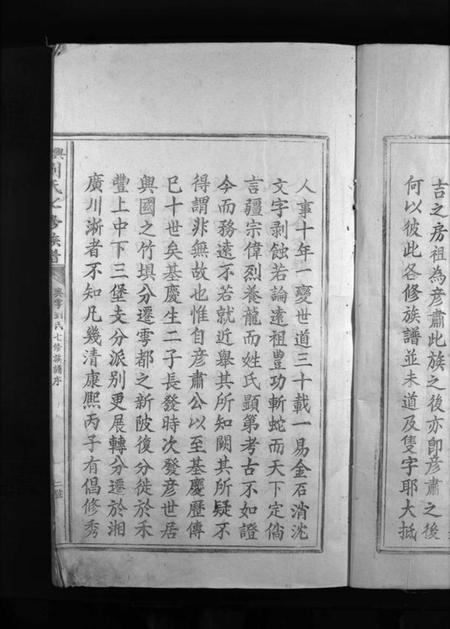 吉之房祖為彦肅此族之後亦即彦肅之後
何以彼此各修族譜並未道及隻字耶大抵
人事十年一變世道三十載一易金石消沈
文字剥蝕若論遠祖豊功斬蛇而天下定倘
言疆宗偉烈養龍而姓氏顯第考古不如證
今而務遠不若就近舉其所知闕其所疑不
得謂非無故也惟自彦肅公以至基慶歷傳
已十世矣基慶生二子長發時次發彦世居
興國之竹垻分遷雩都之新陂復分徙於禾
豐上中下三堡支分派别更展轉分遷於湘
廣川淅者不知凡幾清康熙丙子有倡修秀
興劉氏七修族譜
興寧劉氏七修族譜序
二號